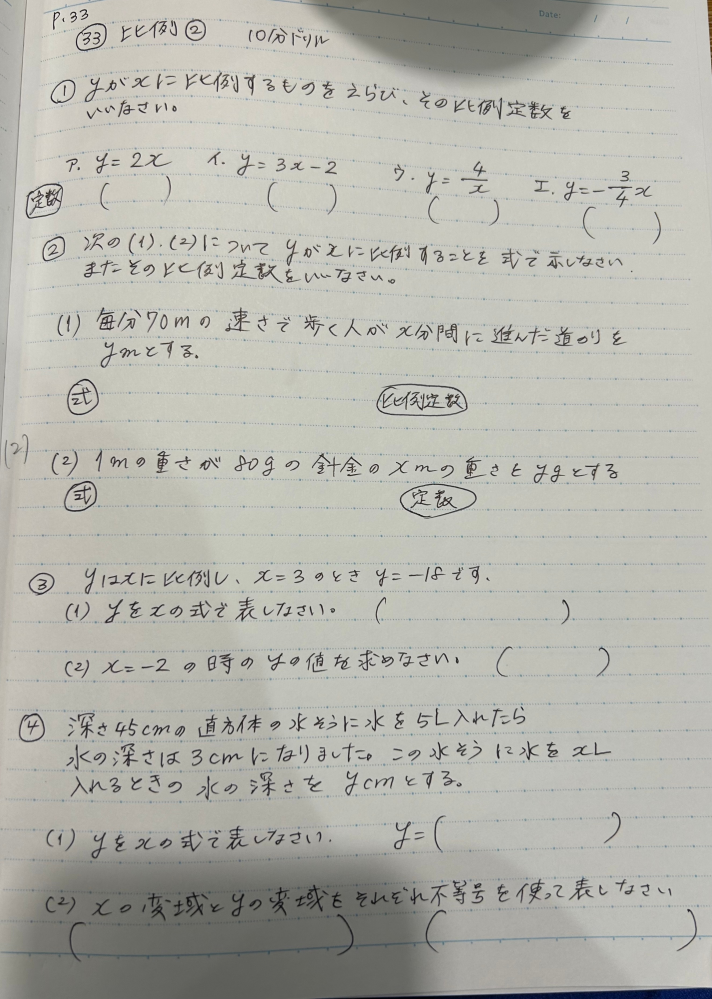 P.33
Date: / /
㉝ 比例② 10分ドリル
① yがxに比例するものをえらび、その比例定数を
いいなさい。
ア. y=2x イ. y=3x-2 ウ. y=4/x エ. y=-3/4x
定数 ( ) ( ) ( ) ( )
② 次の(1).(2)について yがxに比例することを式で示しなさい.
またその比例定数をいいなさい。
(1) 毎分70mの速さで歩く人がx分間に進んだ道のりを
ymとする。
式 比例定数
(2)
(2) 1mの重さが80gの針金のxmの重さをygとする
式 定数
③ yはxに比例し、x=3のときy=-18です.
(1) yをxの式で表しなさい。 ( )
(2) x=-2の時のyの値を求めなさい。 ( )
④ 深さ45cmの直方体の水そうに水を5L入れたら
水の深さは3cmになりました。この水そうに水をxL
入れるときの水の深さをycmとする。
(1) yをxの式で表しなさい. y=( )
(2) xの変域とyの変域をそれぞれ不等号を使って表しなさい
( ) ( )